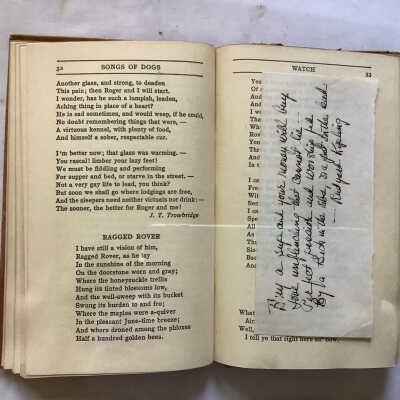 32 SONGS OF DOGS
Another glass, and strong, to deaden
This pain; then Roger and I will start.
I wonder, has he such a lumpish, leaden,
Aching thing in place of a heart?
He is sad sometimes, and would weep, if he could,
No doubt remembering things that were, —
A virtuous kennel, with plenty of food,
And himself a sober, respectable cur.
I'm better now; that glass was warming. —
You rascal! limber your lazy feet!
We must be fiddling and performing
For supper and bed, or starve in the street. —
Not a very gay life to lead, you think?
But soon we shall go where lodgings are free,
And the sleepers need neither victuals nor drink: —
The sooner, the better for Roger and me!
J. T. Trowbridge
RAGGED ROVER
I have still a vision of him,
Ragged Rover, as he lay
In the sunshine of the morning
On the doorstone worn and gray;
Where the honeysuckle trellis
Hung its tinted blossoms low,
And the well-sweep with its bucket
Swung its burden to and fro;
Where the maples were a-quiver
In the pleasant June-time breeze;
And where droned among the phloxes
Half a hundred golden bees.
WATCH 33
Yea
And
And
And
I ca
Spe
All
So
I
And
What
Ain
Well,
I tell ye that right here an' now.
Buy a pup and your money will buy
Love unflinching that cannot lie —
Perfect passion and worship fed
By a kick in the ribs or a pat on the head.
— Rudyard Kipling